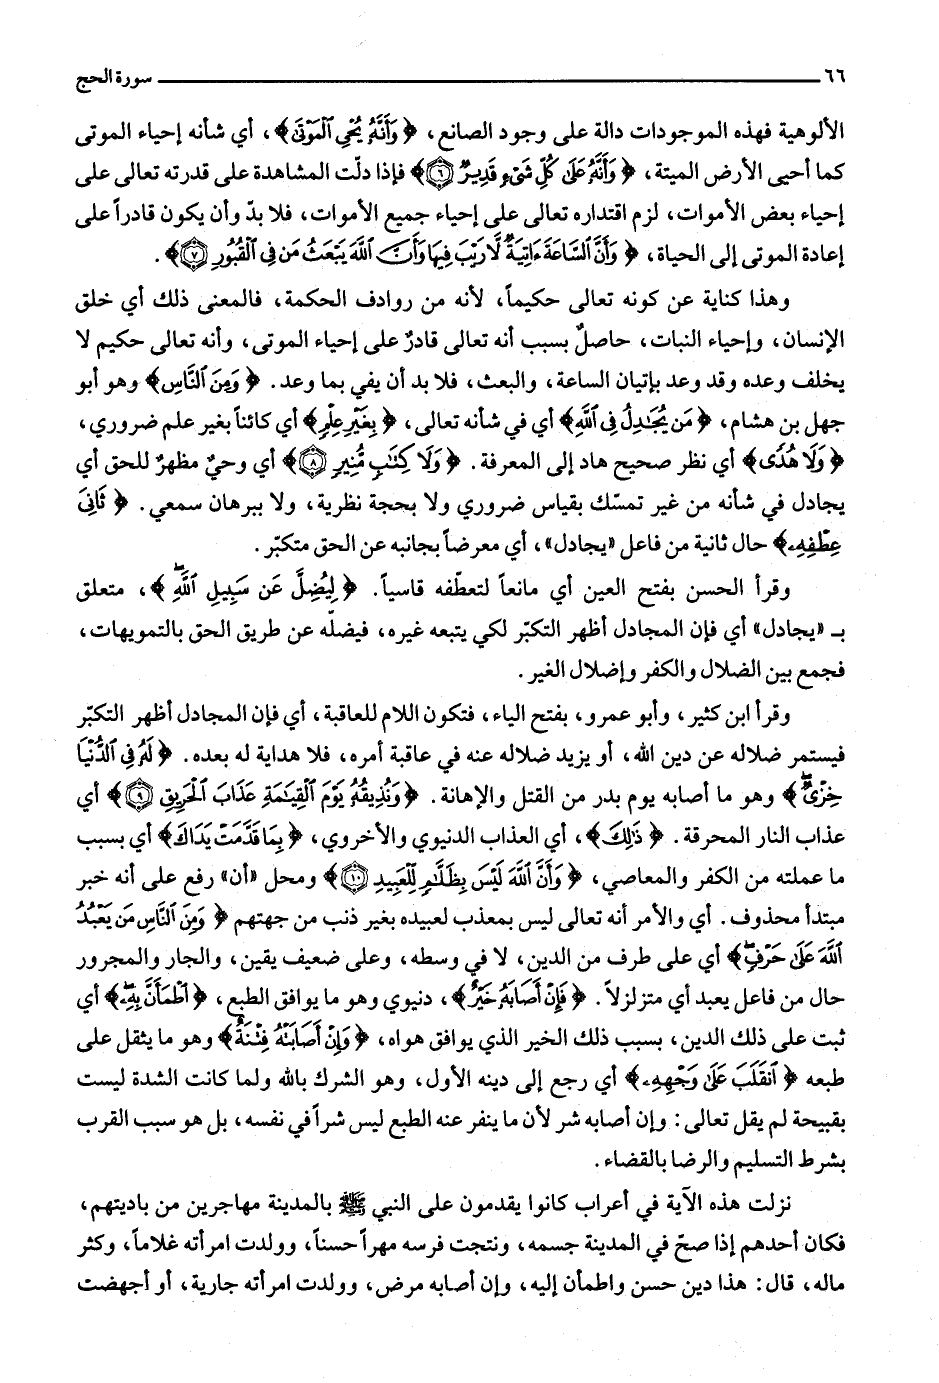 ٦٦ سورة الحج
الألوهية فهذه الموجودات دالة على وجود الصانع، ﴿وَأَنَّهُ يُحْيِ الْمَوْتَى﴾، أي شأنه إحياء الموتى
كما أحيى الأرض الميتة، ﴿وَأَنَّهُ عَلَى كُلِّ شَيْءٍ قَدِيرٌ ٦﴾ فإذا دلّت المشاهدة على قدرته تعالى على
إحياء بعض الأموات، لزم اقتداره تعالى على إحياء جميع الأموات، فلا بدّ وأن يكون قادراً على
إعادة الموتى إلى الحياة، ﴿وَأَنَّ السَّاعَةَ ءَاتِيَةٌ لَّا رَيْبَ فِيهَا وَأَنَّ اللَّهَ يَبْعَثُ مَن فِي الْقُبُورِ ٧﴾.
وهذا كناية عن كونه تعالى حكيماً، لأنه من روادف الحكمة، فالمعنى ذلك أي خلق
الإنسان، وإحياء النبات، حاصلٌ بسبب أنه تعالى قادرٌ على إحياء الموتى، وأنه تعالى حكيم لا
يخلف وعده وقد وعد بإتيان الساعة، والبعث، فلا بد أن يفي بما وعد. ﴿وَمِنَ النَّاسِ﴾ وهو أبو
جهل بن هشام، ﴿مَن يُجَادِلُ فِي اللَّهِ﴾ أي في شأنه تعالى، ﴿بِغَيْرِ عِلْمٍ﴾ أي كائناً بغير علم ضروري،
﴿وَلَا هُدًى﴾ أي نظر صحيح هاد إلى المعرفة. ﴿وَلَا كِتَابٍ مُّنِيرٍ ٨﴾ أي وحيٌ مظهرٌ للحق أي
يجادل في شأنه من غير تمسّك بقياس ضروري ولا بحجة نظرية، ولا ببرهان سمعي. ﴿ثَانِيَ
عِطْفِهِ﴾ حال ثانية من فاعل «يجادل»، أي معرضاً بجانبه عن الحق متكبّر.
وقرأ الحسن بفتح العين أي مانعاً لتعطّفه قاسياً. ﴿لِيُضِلَّ عَن سَبِيلِ اللَّهِ﴾، متعلق
بـ «يجادل» أي فإن المجادل أظهر التكبّر لكي يتبعه غيره، فيضلّه عن طريق الحق بالتمويهات،
فجمع بين الضلال والكفر وإضلال الغير.
وقرأ ابن كثير، وأبو عمرو، بفتح الياء، فتكون اللام للعاقبة، أي فإن المجادل أظهر التكبّر
فيستمر ضلاله عن دين الله، أو يزيد ضلاله عنه في عاقبة أمره، فلا هداية له بعده. ﴿لَهُ فِي الدُّنْيَا
خِزْيٌ﴾ وهو ما أصابه يوم بدر من القتل والإهانة. ﴿وَنُذِيقُهُ يَوْمَ الْقِيَامَةِ عَذَابَ الْحَرِيقِ ٩﴾ أي
عذاب النار المحرقة. ﴿ذَلِكَ﴾، أي العذاب الدنيوي والأخروي، ﴿بِمَا قَدَّمَتْ يَدَاكَ﴾ أي بسبب
ما عملته من الكفر والمعاصي، ﴿وَأَنَّ اللَّهَ لَيْسَ بِظَلَّامٍ لِّلْعَبِيدِ ١٠﴾ ومحل «أن» رفع على أنه خبر
مبتدأ محذوف. أي والأمر أنه تعالى ليس بمعذب لعبيده بغير ذنب من جهتهم ﴿وَمِنَ النَّاسِ مَن يَعْبُدُ
اللَّهَ عَلَى حَرْفٍ﴾ أي على طرف من الدين، لا في وسطه، وعلى ضعيف يقين، والجار والمجرور
حال من فاعل يعبد أي متزلزلاً. ﴿فَإِنْ أَصَابَهُ خَيْرٌ﴾، دنيوي وهو ما يوافق الطبع، ﴿اطْمَأَنَّ بِهِ﴾ أي
ثبت على ذلك الدين، بسبب ذلك الخير الذي يوافق هواه، ﴿وَإِنْ أَصَابَتْهُ فِتْنَةٌ﴾ وهو ما يثقل على
طبعه ﴿انقَلَبَ عَلَى وَجْهِهِ﴾ أي رجع إلى دينه الأول، وهو الشرك بالله ولما كانت الشدة ليست
بقبيحة لم يقل تعالى: وإن أصابه شر لأن ما ينفر عنه الطبع ليس شراً في نفسه، بل هو سبب القرب
بشرط التسليم والرضا بالقضاء.
نزلت هذه الآية في أعراب كانوا يقدمون على النبي ﷺ بالمدينة مهاجرين من باديتهم،
فكان أحدهم إذا صحّ في المدينة جسمه، ونتجت فرسه مهراً حسناً، وولدت امرأته غلاماً، وكثر
ماله، قال: هذا دين حسن واطمأن إليه، وإن أصابه مرض، وولدت امرأته جارية، أو أجهضت